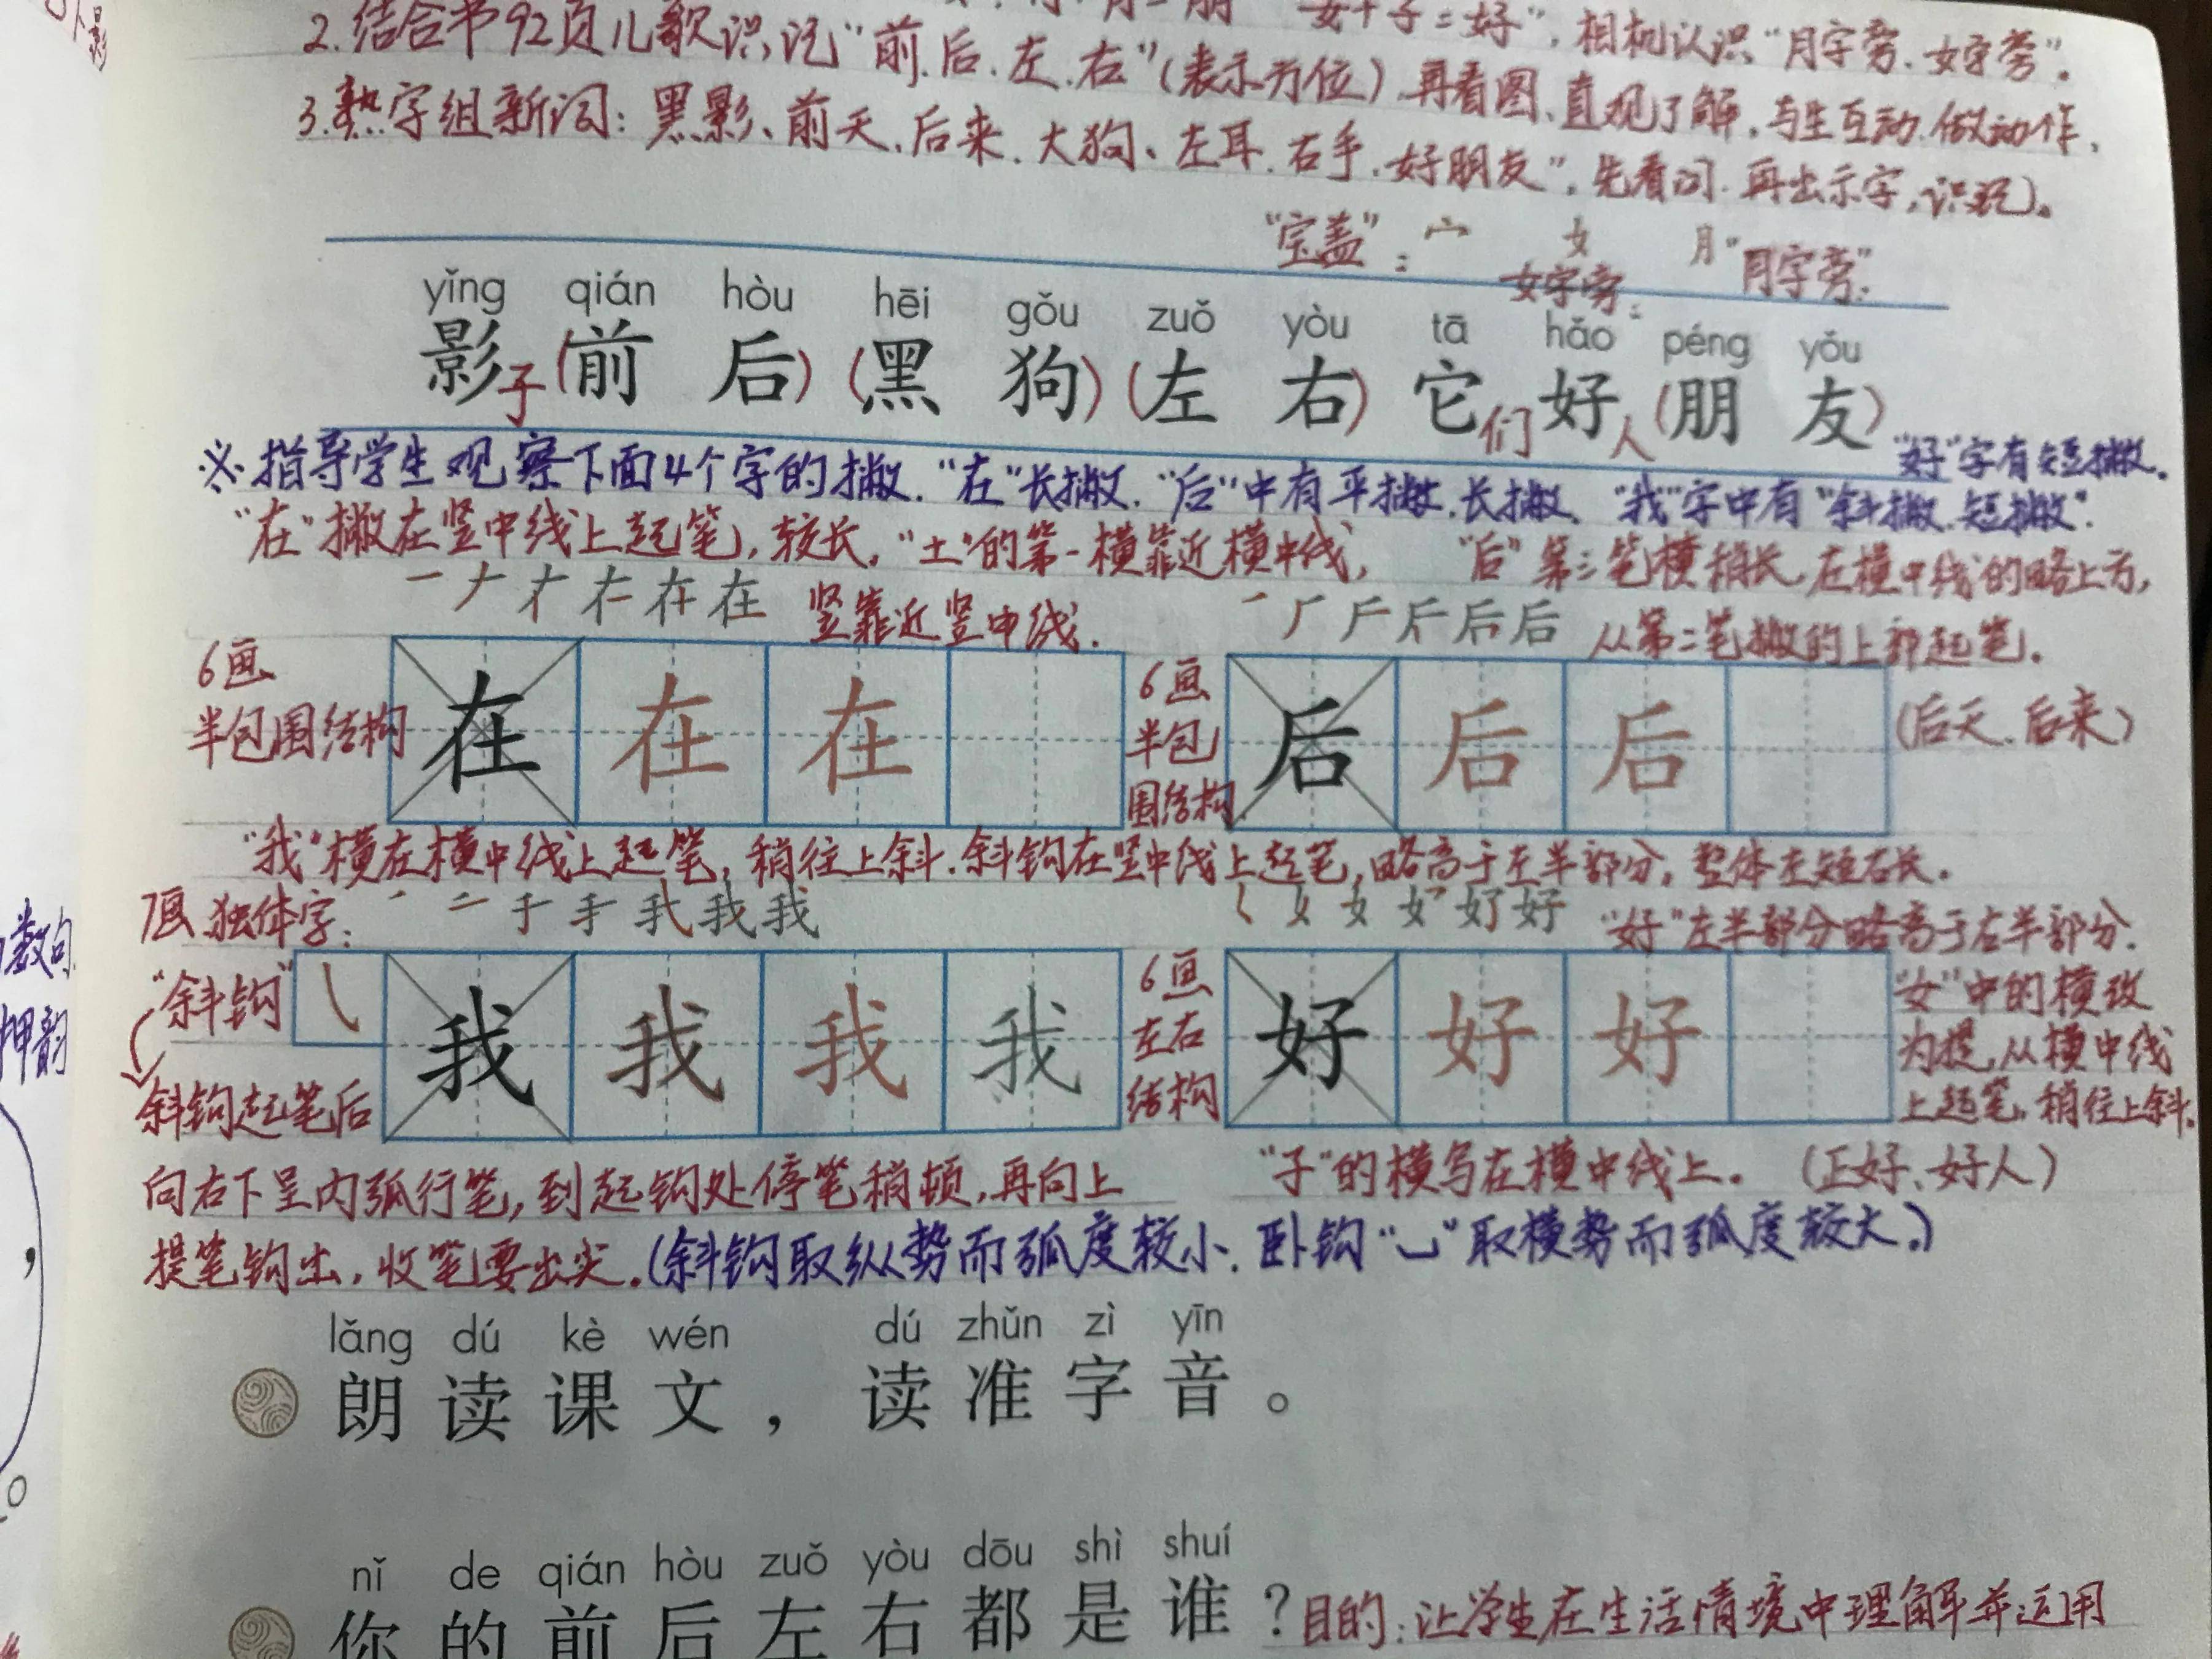 2.结合书92页儿歌识记“前.后.左.右”(表示方位).再看图、直观了解,与生互动.做动作,
女+子=好”,相机认识“月字旁.女字旁”。
3.熟字组新词:黑影、前天、后来.大狗、左耳.右手.好朋友”,先看词.再出示字,识记)。
“宝盖”:宀 女 女字旁: 月“月字旁”:
yǐng qián hòu hēi gǒu zuǒ yòu tā hǎo péng yǒu
影子(前后)(黑狗)(左右)它们好人(朋友)
※指导学生观察下面4个字的撇.“在”长撇.“后”中有平撇.长撇、“我”字中有“斜撇.短撇”.
“好”字有短撇.
“在”撇在竖中线上起笔,较长,“土”的第一横靠近横中线,
竖靠近竖中线.
“后”第三笔横稍长,在横中线的略上方,
从第二笔撇的上部起笔.
6画
半包围结构
在 在 在
6画
半包
围结构
后 后 后
(后天.后来)
“我”横在横中线上起笔,稍往上斜.斜钩在竖中线上起笔,略高于左半部分,整体左短右长.
7画 独体字:
“好”左半部分略高于右半部分.
“斜钩”
我 我 我 我
6画
左右
结构
好 好 好
“女”中的横改
为提,从横中线
上起笔,稍往上斜.
斜钩起笔后
向右下呈内弧行笔,到起钩处停笔稍顿,再向上
提笔钩出,收笔要出尖.(斜钩取纵势而弧度较小.卧钩“㇃”取横势而弧度较大.)
“子”的横写在横中线上。(正好、好人)
lǎng dú kè wén dú zhǔn zì yīn
朗读课文,读准字音。
nǐ de qián hòu zuǒ yòu dōu shì shuí
你的前后左右都是谁?目的:让学生在生活情境中理解并运用